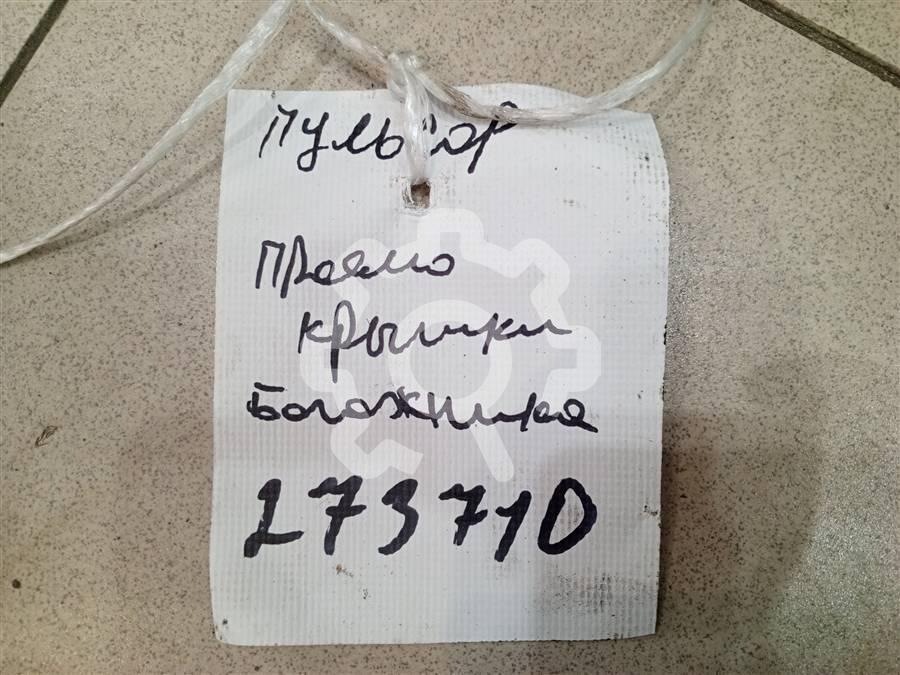 Пульсар
Проемо
крышки
Богожника
273710